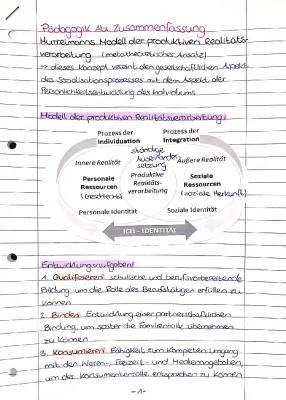 Pädagogik Abi Zusammenfassung
Hurrelmanns Modell der produktiven Realitäts-
verarbeitung (metatheoretischer Ansatz)
→ dieses Konzept vereint den gesellschaftlichen Aspekt
des Sozialisationsprozesses mit dem Aspekt der
Persönlichkeitsentwicklung des Individuums
Modell der produktiven Realitätsverarbeitung:
Prozess der Individuation
Prozess der Integration
ständige Auseinandersetzung
Innere Realität
Äußere Realität
Personale Ressourcen
(Geschlecht)
Produktive Realitäts-verarbeitung
Soziale Ressourcen
(soziale Herkunft)
Personale Identität
Soziale Identität
ICH – IDENTITÄT
Entwicklungsaufgaben:
1. Qualifizieren: schulische und berufsvorbereitende
Bildung, um die Rolle des Berufstätigen erfüllen zu
können
2. Binden: Entwicklung einer partnerschaftlichen
Bindung, um später die Familienrolle übernehmen
zu können
3. Konsumieren: Fähigkeit zum kompetenten Umgang
mit den Waren-, Freizeit- und Medienangeboten,
um der Konsumentenrolle entsprechen zu können
-1-